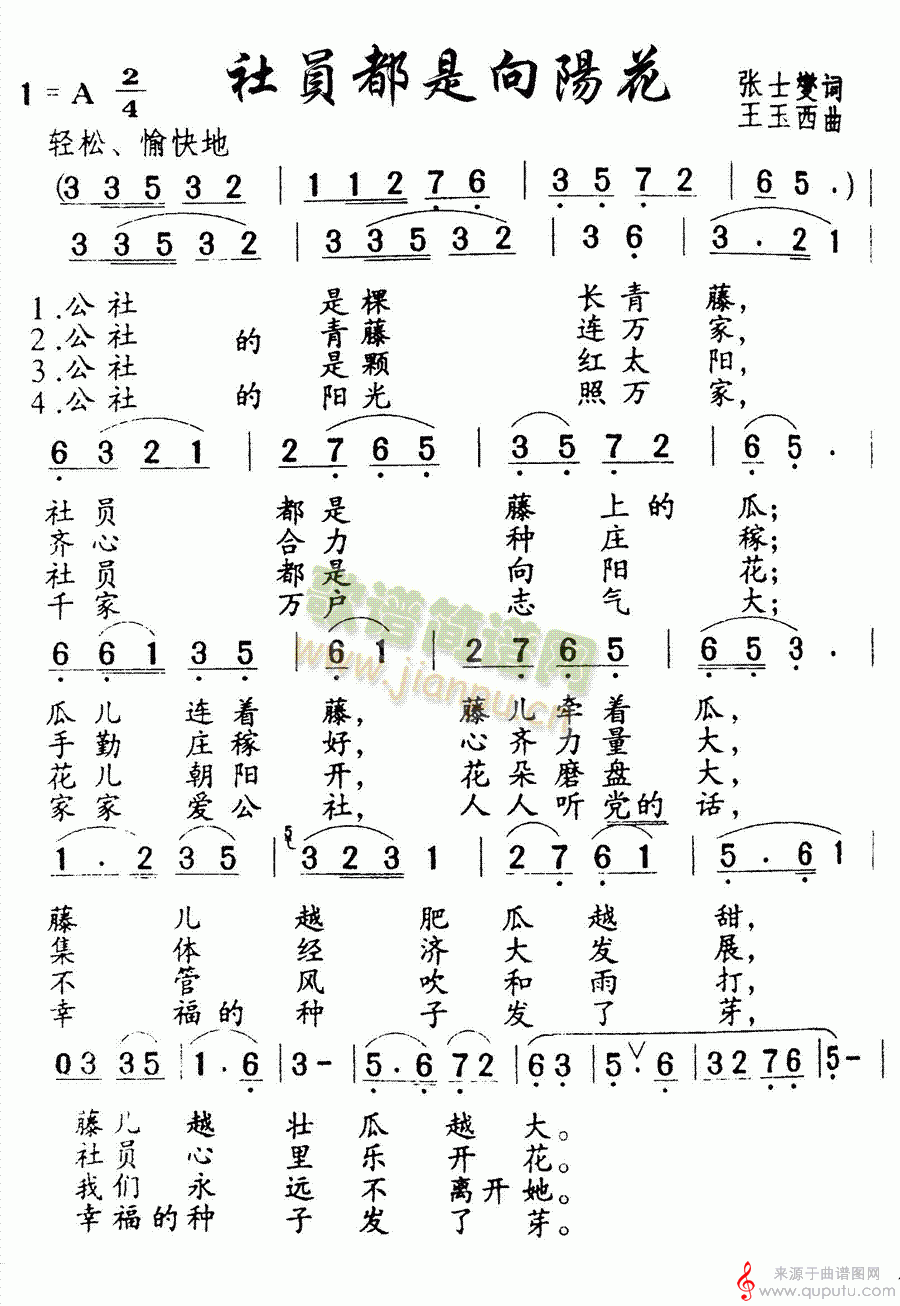 社員都是向陽花
1=A 2/4
张士燮词
王玉西曲
轻松、愉快地
(3 3532 | 11276 | 3572 | 65.) |
33532 | 33532 | 36 | 3.21 |
1.公社 是棵 长青藤,
2.公社的青藤 连万家,
3.公社 是颗 红太阳,
4.公社的阳光 照万家,
6321 | 2765 | 3572 | 65. |
社员 都是 藤上的瓜;
齐心 合力 种庄稼;
社员 都是 向阳花;
千家 万户 志气大;
66135 | 61 | 2765 | 653. |
瓜儿连着 藤, 藤儿牵着 瓜,
手勤庄稼 好, 心齐力量 大,
花儿朝阳 开, 花朵磨盘 大,
家家爱公 社, 人人听党的 话,
1.235 | 5 3231 | 2761 | 5.61 |
藤儿越肥瓜越甜,
集体经济大发展,
不管风吹和雨打,
幸福的种子发了芽,
03 35 | 1.6 | 3- | 5.672 | 63 | 5.∨6 | 3276 | 5- |
藤儿越壮瓜越大。
社员心里乐开花。
我们永远不离开她。
幸福的种子发了芽。
歌谱简谱网
www.jianpu.cn
来源于曲谱图网
www.quputu.com